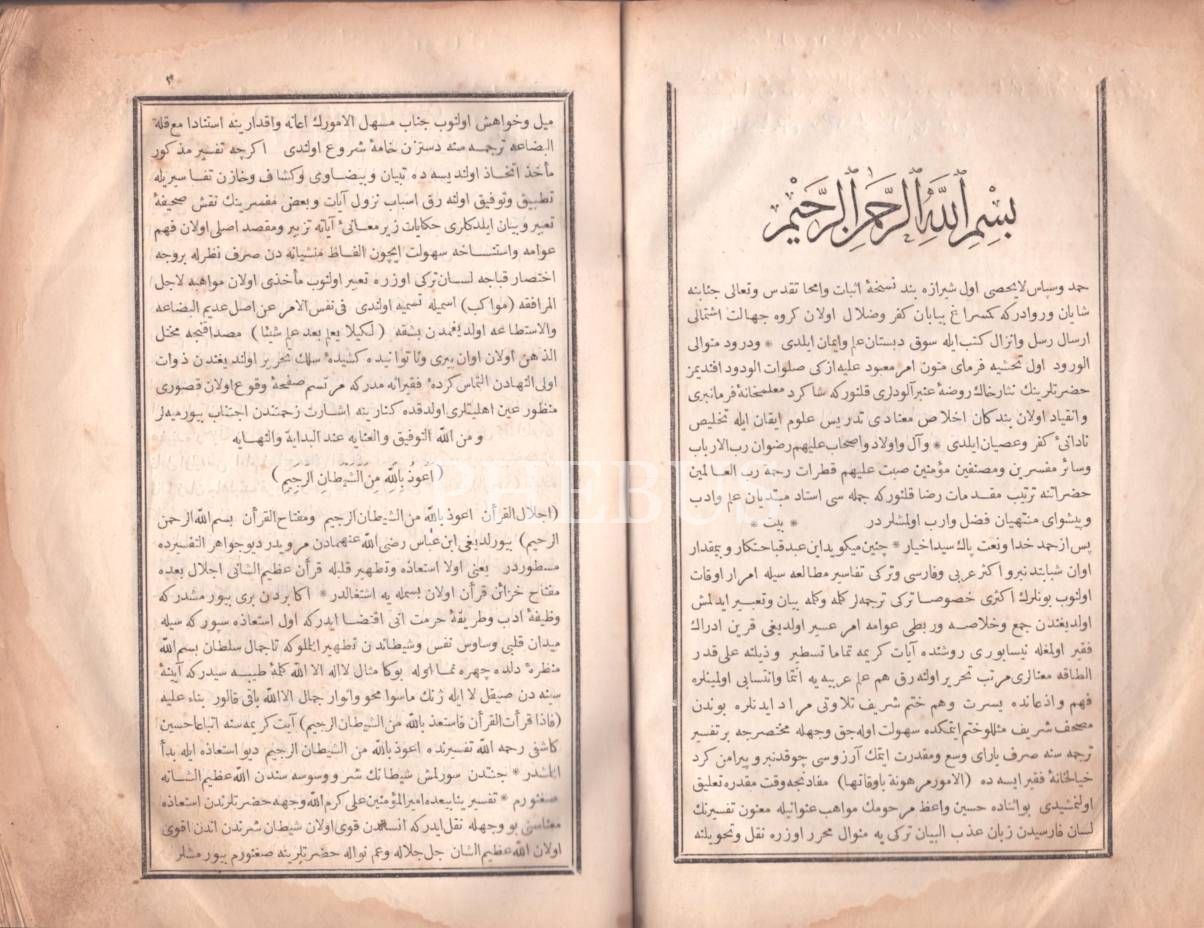 بسم الله الرحمن الرحيم
حمد وسپاس لايحصی اول شيرازه بند نسخۀ اثبات وامحا تقدس وتعالی جنابنه
شايان وروادركه كمسراغ بيابان كفر وضلال اولان كروه جهالت اشتمالی
ارسال رسل وانزال كتب ايله سوق دبستان علم وايمان ايلدی * ودرود متوالی
الورود اول تحشيه فرمای متون امر معبود عليه ازكی صلوات الودود افنديمز
حضرتلرينك نثار خاك روضۀ عنبر آلودلری قلنوركه شاكرد معلمخانۀ فرمانبری
وانقياد اولان بندكان اخلاص معتادی تدريس علوم ايقان ايله تخليص
نادانئ كفر وعصيان ايلدی * وآل واولاد واصحاب عليهم رضوان رب الارباب
وسائر مفسرين ومصنفين مؤمنين صبت عليهم قطرات رحمة رب العالمين
حضراتنه ترتيب مقدمات رضا قلنوركه جمله سی استاد مبتديان علم وادب
وپيشوای منتهيان فضل وارب اولمشلردر * بيت *
پس از حمد خدا ونعت پاك سيد اخيار * چنين ميكويد اين عبد قباحتكار وبيمقدار
اوان شبابتدنبرو اكثر عربی وفارسی وتركی تفاسير مطالعه سيله امرار اوقات
اولنوب بونلرك اكثری خصوصا تركی ترجمه لر كلمه وكلمه بيان وتعبير ايدلمش
اولديغندن جمع وخلاصه وربطی عوامه امر عسير اولديغی قرين ادراك
فقير اولمغله نيسابوری روشنده آيات كريمه تماما تسطير وذيلنه علی قدر
الطاقه معنالری مرتب تحرير اولنه رق هم علم عربيه يه انتما وانتسابی اولمينلره
فهم واذعانده يسرت وهم ختم شريف تلاوتی مراد ايدنلره بوندن
مصحف شريف مثللو ختم ايتمكده سهولت اوله جق وجهله مختصرجه بر تفسير
ترجمه سنه صرف يارای وسع ومقدرت ايتمك آرزوسی چوقدنبرو پيرامن كرد
خيالخانۀ فقير ايسه ده (الامور مرهونة باوقاتها) مفادنجه وقت مقدره تعليق
اولنمشيدی بو اثناده حسين واعظ مرحومك مواهب عنوانيله معنون تفسيرنك
لسان فارسيدن زبان عذب البيان تركی يه منوال محرر اوزره نقل وتحويلنه
٣
ميل وخواهش اولنوب جناب مسهل الامورك اعانه واقدارينه استنادا مع قلة
البضاعه ترجمه سنه دستزن خامۀ شروع اولندی اكرچه تفسير مذكور
مأخذ اتخاذ اولنديسه ده تبيان وبيضاوی وكشاف وخازن تفاسيريله
تطبيق وتوفيق اولنه رق اسباب نزول آيات وبعض مفسرينك نقش صحيفۀ
تعبير وبيان ايلدكلری حكايات زير معانئ آياته تزبير ومقصد اصلی اولان فهم
عوامه واستنساخه سهولت ايچون الفاظ منشيانه دن صرف نظرله بروجه
اختصار قباجه لسان تركی اوزره تعبير اولنوب مأخذی اولان مواهبه لاجل
المرافقه (مواكب) اسميله تسميه اولندی فی نفس الامر عن اصل عديم البضاعه
والاستطاعه اولديغمدن بشقه (لكيلا يعلم بعد علم شيئا) مصداقنجه مختل
الذهن اولان اوان پيری وناتوانيده كشيدۀ سلك تحرير اولنديغندن ذوات
اولی النهادن التماس كردۀ فقيرانه مدركه مرتسم صفحۀ وقوع اولان قصوری
منظور عين اهليتلری اولدقده كنارينه اشارت زحمتندن اجتناب بيورميه لر
ومن الله التوفيق والعنايه عند البداية والنهايه
(اعوذ بالله من الشيطان الرجيم)
(اجلال القرأن اعوذ بالله من الشيطان الرجيم ومفتاح القرأن بسم الله الرحمن
الرحيم) بيورلديغی ابن عباس رضی الله عنهمادن مرويدر ديو جواهر التفسيرده
مسطوردر يعنی اولا استعاذه وتطهير قلبله قرأن عظيم الشانی اجلال بعده
مفتاح خزائن قرأن اولان بسمله يه اشتغالدر * اكابردن بری بيورمشدركه
وظيفۀ ادب وطريقۀ حرمت انی اقتضا ايدركه اول استعاذه سپوركه سيله
ميدان قلبی وساوس نفس وشيطاندن تطهير ايلملوكه تا جمال سلطان بسم الله
منظرۀ دلده چهره نما اوله بوكا مثال لااله الا الله كلمۀ طيبه سيدركه آيينۀ
سينه دن صيقل لا ايله ژنك ماسوا محو وانوار جمال الا الله باقی قالور بناء عليه
(فاذا قرأت القرأن فاستعذ بالله من الشيطان الرجيم) آيت كريمه سنه اتباعا حسين
كاشفی رحمه الله تفسيرنده اعوذ بالله من الشيطان الرجيم ديو استعاذه ايله بدأ
ايلمشدر * جنتدن سورلمش شيطانك شر ووسوسه سندن الله عظيم الشانه
صغنورم * تفسير ينابيعده امير المؤمنين علی كرم الله وجهه حضرتلرندن استعاذه
معناسنی بو وجهله نقل ايدركه انساندن قوی اولان شيطان شرندن اندن اقوی
اولان الله عظيم الشان جل جلاله وعم نواله حضرتلرينه صغنورم بيورمشلر
PHEBUS